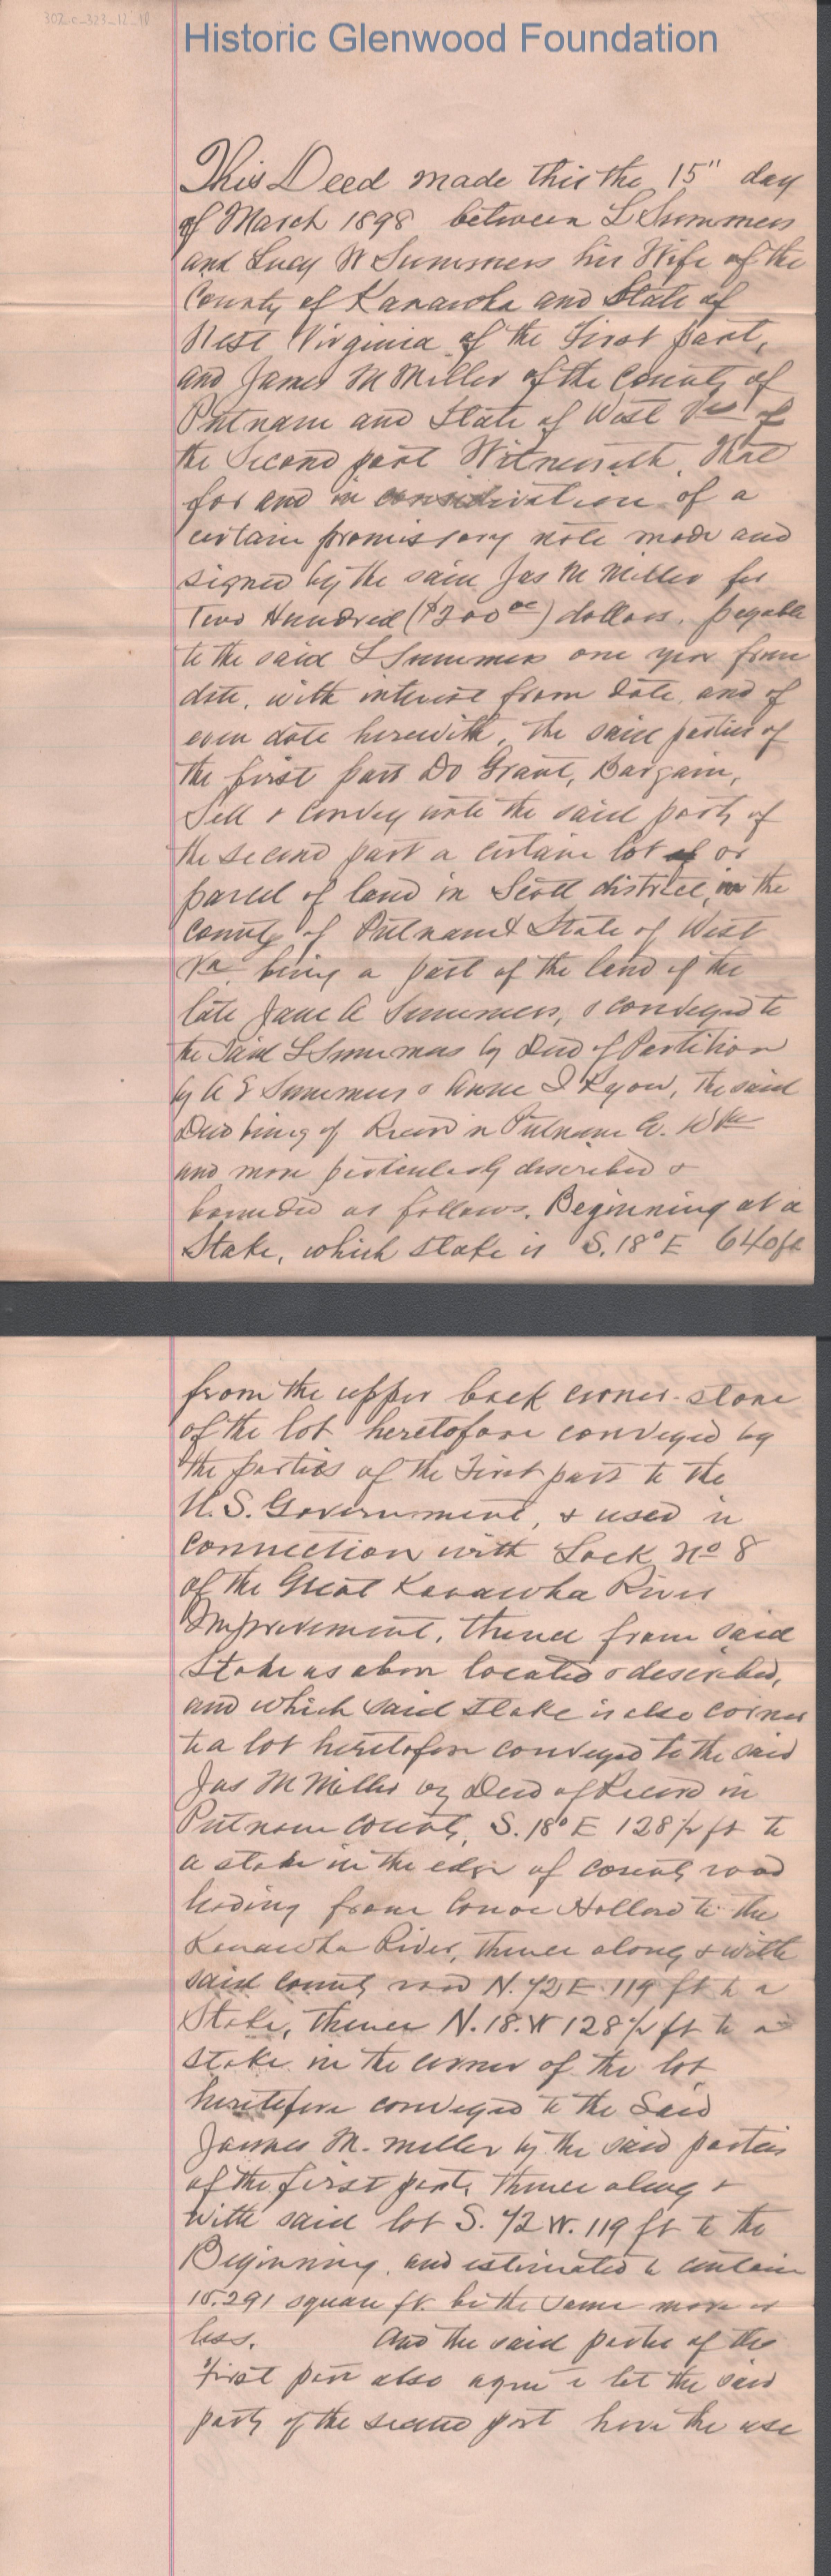 302-c-323-12-18
Historic Glenwood Foundation
This Deed made this the 15" day
of March 1898 between L Summers
and Lucy W Summers his Wife of the
County of Kanawha and State of
West Virginia of the First part,
and James M Miller of the County of
Putnam and State of West Va of
the Second part Witnesseth, That
for and in consideration of a
certain promissory note made and
signed by the said Jas M Miller for
Two Hundred ($200 00) dollars, payable
to the said L Summers one year from
date, with interest from date, and of
even date herewith, the said parties of
the first part Do Grant, Bargain,
Sell & convey unto the said party of
the second part a certain lot or
parcel of land in Scott district, in the
County of Putnam & State of West
Va being a part of the land of the
late Jane A Summers, & conveyed to
the said L Summers by Deed of Partition
by A E Summers & I Lyon, the said
Deed being of Record in Putnam Co. W Va
and more particularly described &
bounded as follows. Beginning at a
Stake, which stake is S. 18° E 640 ft
from the upper back corner-stone
of the lot heretofore conveyed by
the parties of the First part to the
U.S. Government, & used in
connection with Lock No 8
of the Great Kanawha River
Improvement, thence from said
Stake as above located & described,
and which said stake is also corner
to a lot heretofore conveyed to the said
Jas M Miller by Deed of Record in
Putnam County, S. 18° E 128 1/2 ft to
a stake in the edge of county road
leading from Hollow to the
Kanawha River, thence along & with
said county road N. 72 E. 119 ft to a
Stake, thence N. 18. W 128 1/2 ft to a
stake in the corner of the lot
heretofore conveyed to the Said
James M. Miller by the said parties
of the first part, thence along &
with said lot S. 72 W. 119 ft to the
Beginning, and estimated to contain
15.291 square ft. be the same more or
less. And the said parties of the
First part also agree to let the said
party of the second part have the use